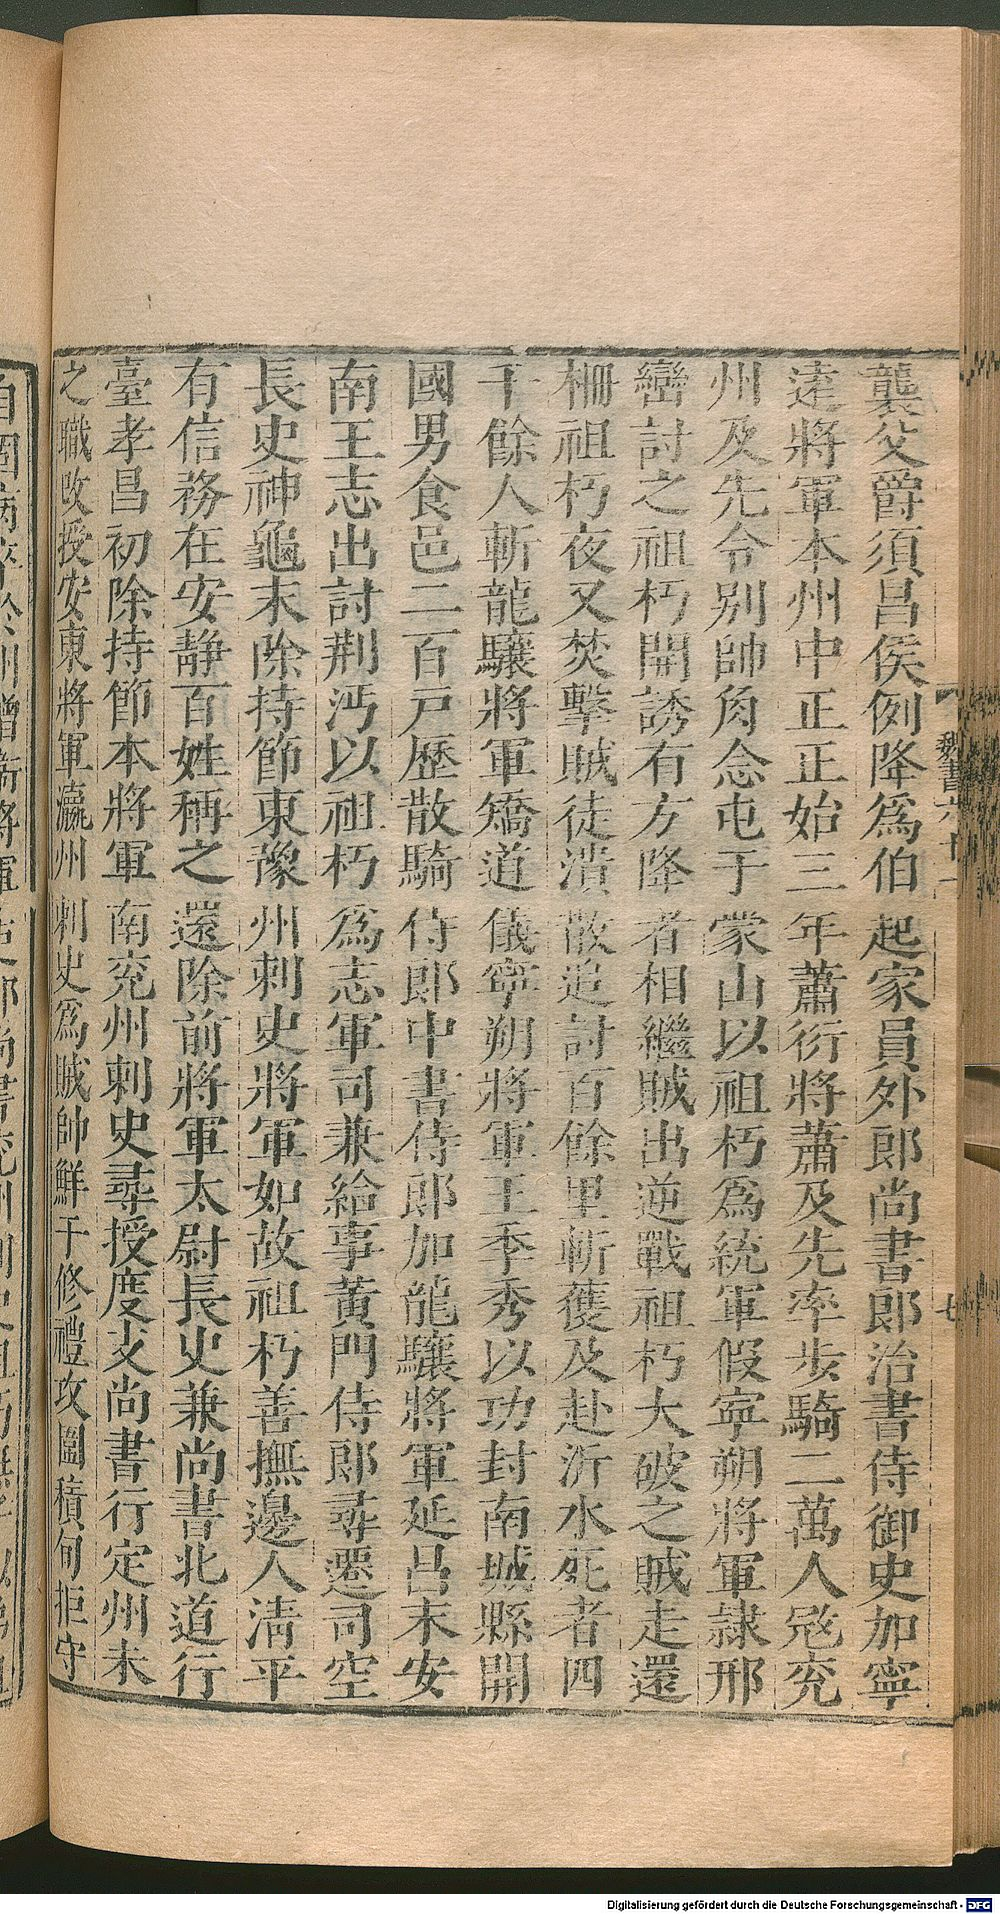 襲父爵須昌侯例降爲伯起家員外郎尚書郎治書侍御史加寧
遠將軍本州中正正始三年蕭衍將蕭及先率步騎二萬人寇兗
州及先令别帥角念屯于蒙山以祖朽爲統軍假寧朔將軍隷邢
巒討之祖朽開誘有方降者相繼賊出逆戰祖朽大破之賊走還
柵祖朽夜又焚擊賊徒潰散追討百餘里斬獲及赴沂水死者四
千餘人斬龍驤將軍矯道儀寧朔將軍王季秀以功封南城縣開
國男食邑二百戸歷散騎侍郎中書侍郎加龍驤將軍延昌末安
南王志出討荆沔以祖朽爲志軍司兼給事黃門侍郎尋遷司空
長史神龜末除持節東豫州刺史將軍如故祖朽善撫邊人清平
有信務在安靜百姓稱之還除前將軍太尉長史兼尚書北道行
臺孝昌初除持節本將軍南兗州刺史尋授度支尚書行定州未
之職改授安東將軍瀛州刺史爲賊帥鮮于修禮攻圍積旬拒守
魏書六十一
七
Digitalisierung gefördert durch die Deutsche Forschungsgemeinschaft - DFG